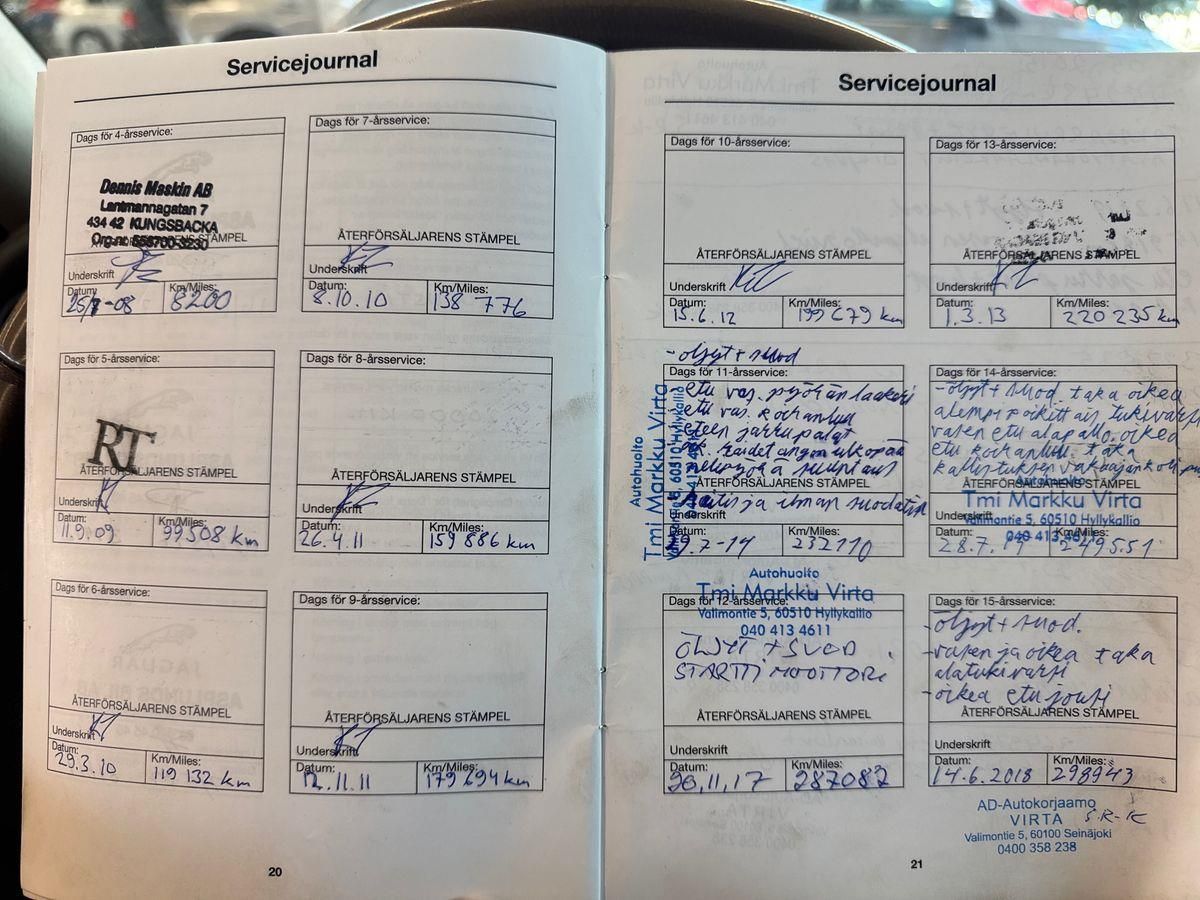 Servicejournal
Dags för 4-årsservice:
Dennis Maskin AB
Lantmannagatan 7
434 42 KUNGSBACKA
Org.nr. 556700-3230
ÅTERFÖRSÄLJARENS STÄMPEL
Underskrift
Datum:
Km/Miles:
-08
8200
Dags för 7-årsservice:
ÅTERFÖRSÄLJARENS STÄMPEL
Underskrift
Datum:
Km/Miles:
8.10.10
138 776
Dags för 5-årsservice:
RT
ÅTERFÖRSÄLJARENS STÄMPEL
Underskrift
Datum:
Km/Miles:
11.9.09
99508 km
Dags för 8-årsservice:
ÅTERFÖRSÄLJARENS STÄMPEL
Underskrift
Datum:
Km/Miles:
26.4.11
159 886 km
Dags för 6-årsservice:
ÅTERFÖRSÄLJARENS STÄMPEL
Underskrift
Datum:
Km/Miles:
29.3.10
119 132 km
Dags för 9-årsservice:
ÅTERFÖRSÄLJARENS STÄMPEL
Underskrift
Datum:
Km/Miles:
12.11.11
179 294 km
20
Servicejournal
Dags för 10-årsservice:
ÅTERFÖRSÄLJARENS STÄMPEL
Underskrift
Datum:
Km/Miles:
15.6.12
199 679 km
Dags för 13-årsservice:
ÅTERFÖRSÄLJARENS STÄMPEL
Underskrift
Datum:
Km/Miles:
1.3.13
220 235 km
- öljyt + suod
Dags för 11-årsservice:
- etu vas. pyörän laakeri
etu vas. koiranluu
eteen jarrupalat
raidetangon ulkopää
nelipyörä suuntaus
ja ilman suodatin
ÅTERFÖRSÄLJARENS STÄMPEL
Underskrift
Datum:
Km/Miles:
.7-14
232110
Autohuolto
Tmi Markku Virta
Valimontie 5, 60510 Hyllykallio
Dags för 14-årsservice:
- öljyt + suod. taka oikea
alempi poikittais tukivarsi
vasen etu alapallo. oikea
etu koiranluu. taka
kallistuksen vakaajan
ÅTERFÖRSÄLJARENS STÄMPEL
Autohuolto
Tmi Markku Virta
Valimontie 5, 60510 Hyllykallio
040 413 4611
Underskrift
Datum:
Km/Miles:
28.7.
249551
Autohuolto
Tmi Markku Virta
Valimontie 5, 60510 Hyllykallio
040 413 4611
Dags för 12-årsservice:
ÖLJYT + SUOD.
STARTTIMOOTTORI
ÅTERFÖRSÄLJARENS STÄMPEL
Underskrift
Datum:
Km/Miles:
20.11.17
287082
Dags för 15-årsservice:
- öljyt + suod.
- vasen ja oikea taka
alatukivarsi
- oikea etu jousi
ÅTERFÖRSÄLJARENS STÄMPEL
Underskrift
Datum:
Km/Miles:
14.6.2018
298943
AD-Autokorjaamo
VIRTA
Valimontie 5, 60100 Seinäjoki
0400 358 238
21